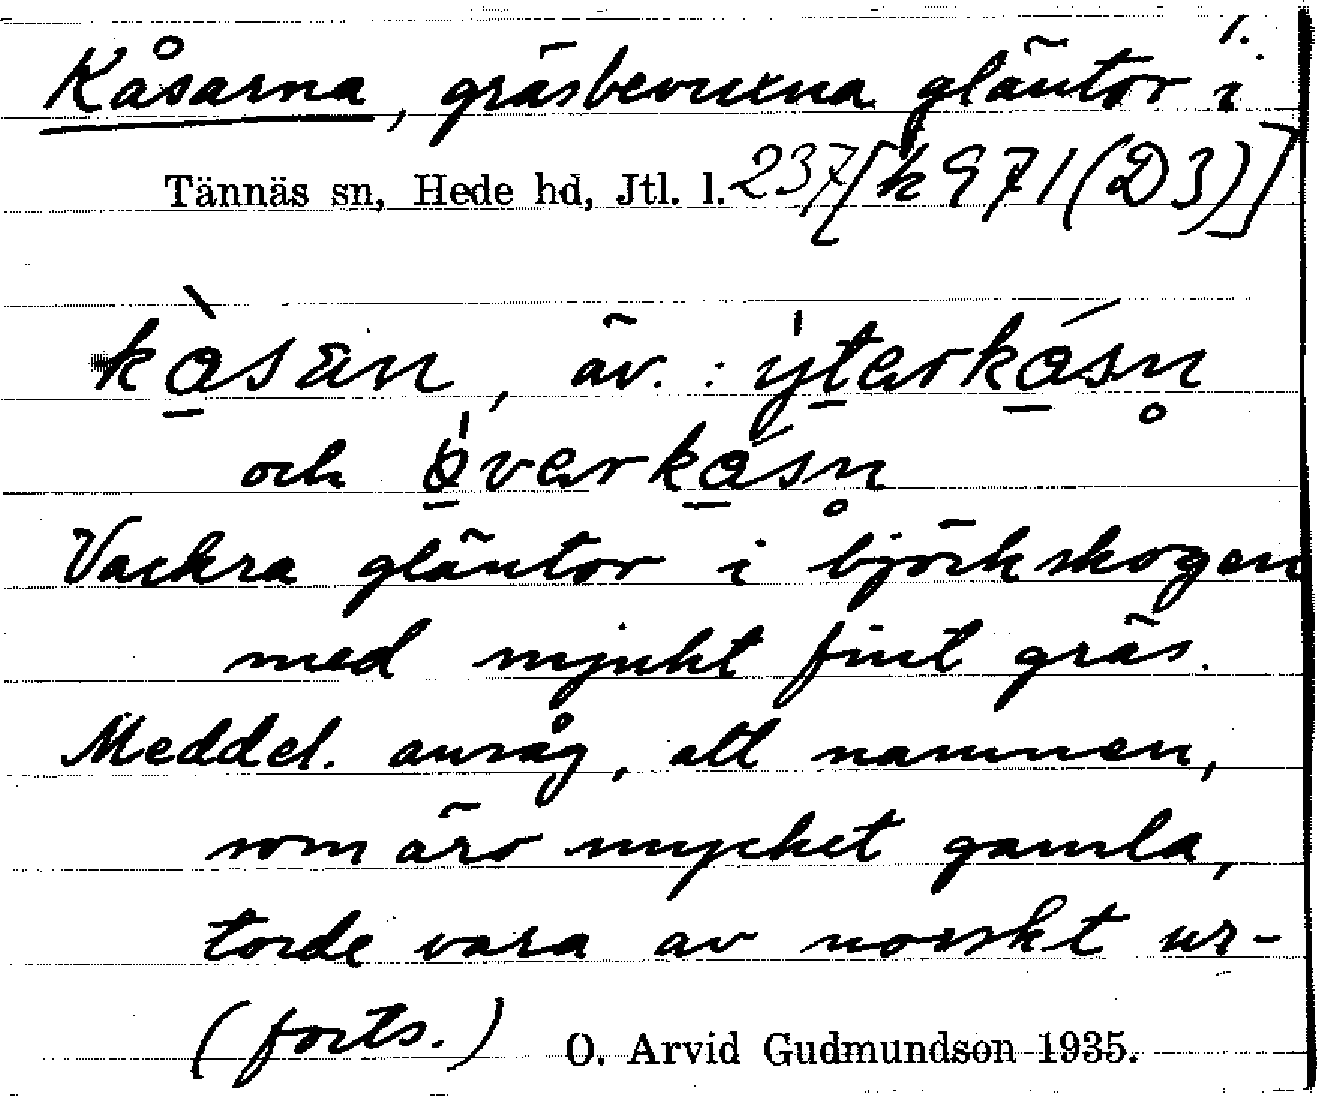 1.
Kåsarna, gräsbevuxna gläntor i
Tännäs sn, Hede hd, Jtl. l. 237 [k 971 (D3)]
kàsan, äv. : ýterkásn
och óverkásn
Vackra gläntor i björkskogen
med mjukt fint gräs.
Meddel. ansåg, att namnen,
som äro mycket gamla,
torde vara av norskt ur-
(forts.) O. Arvid Gudmundson 1935.